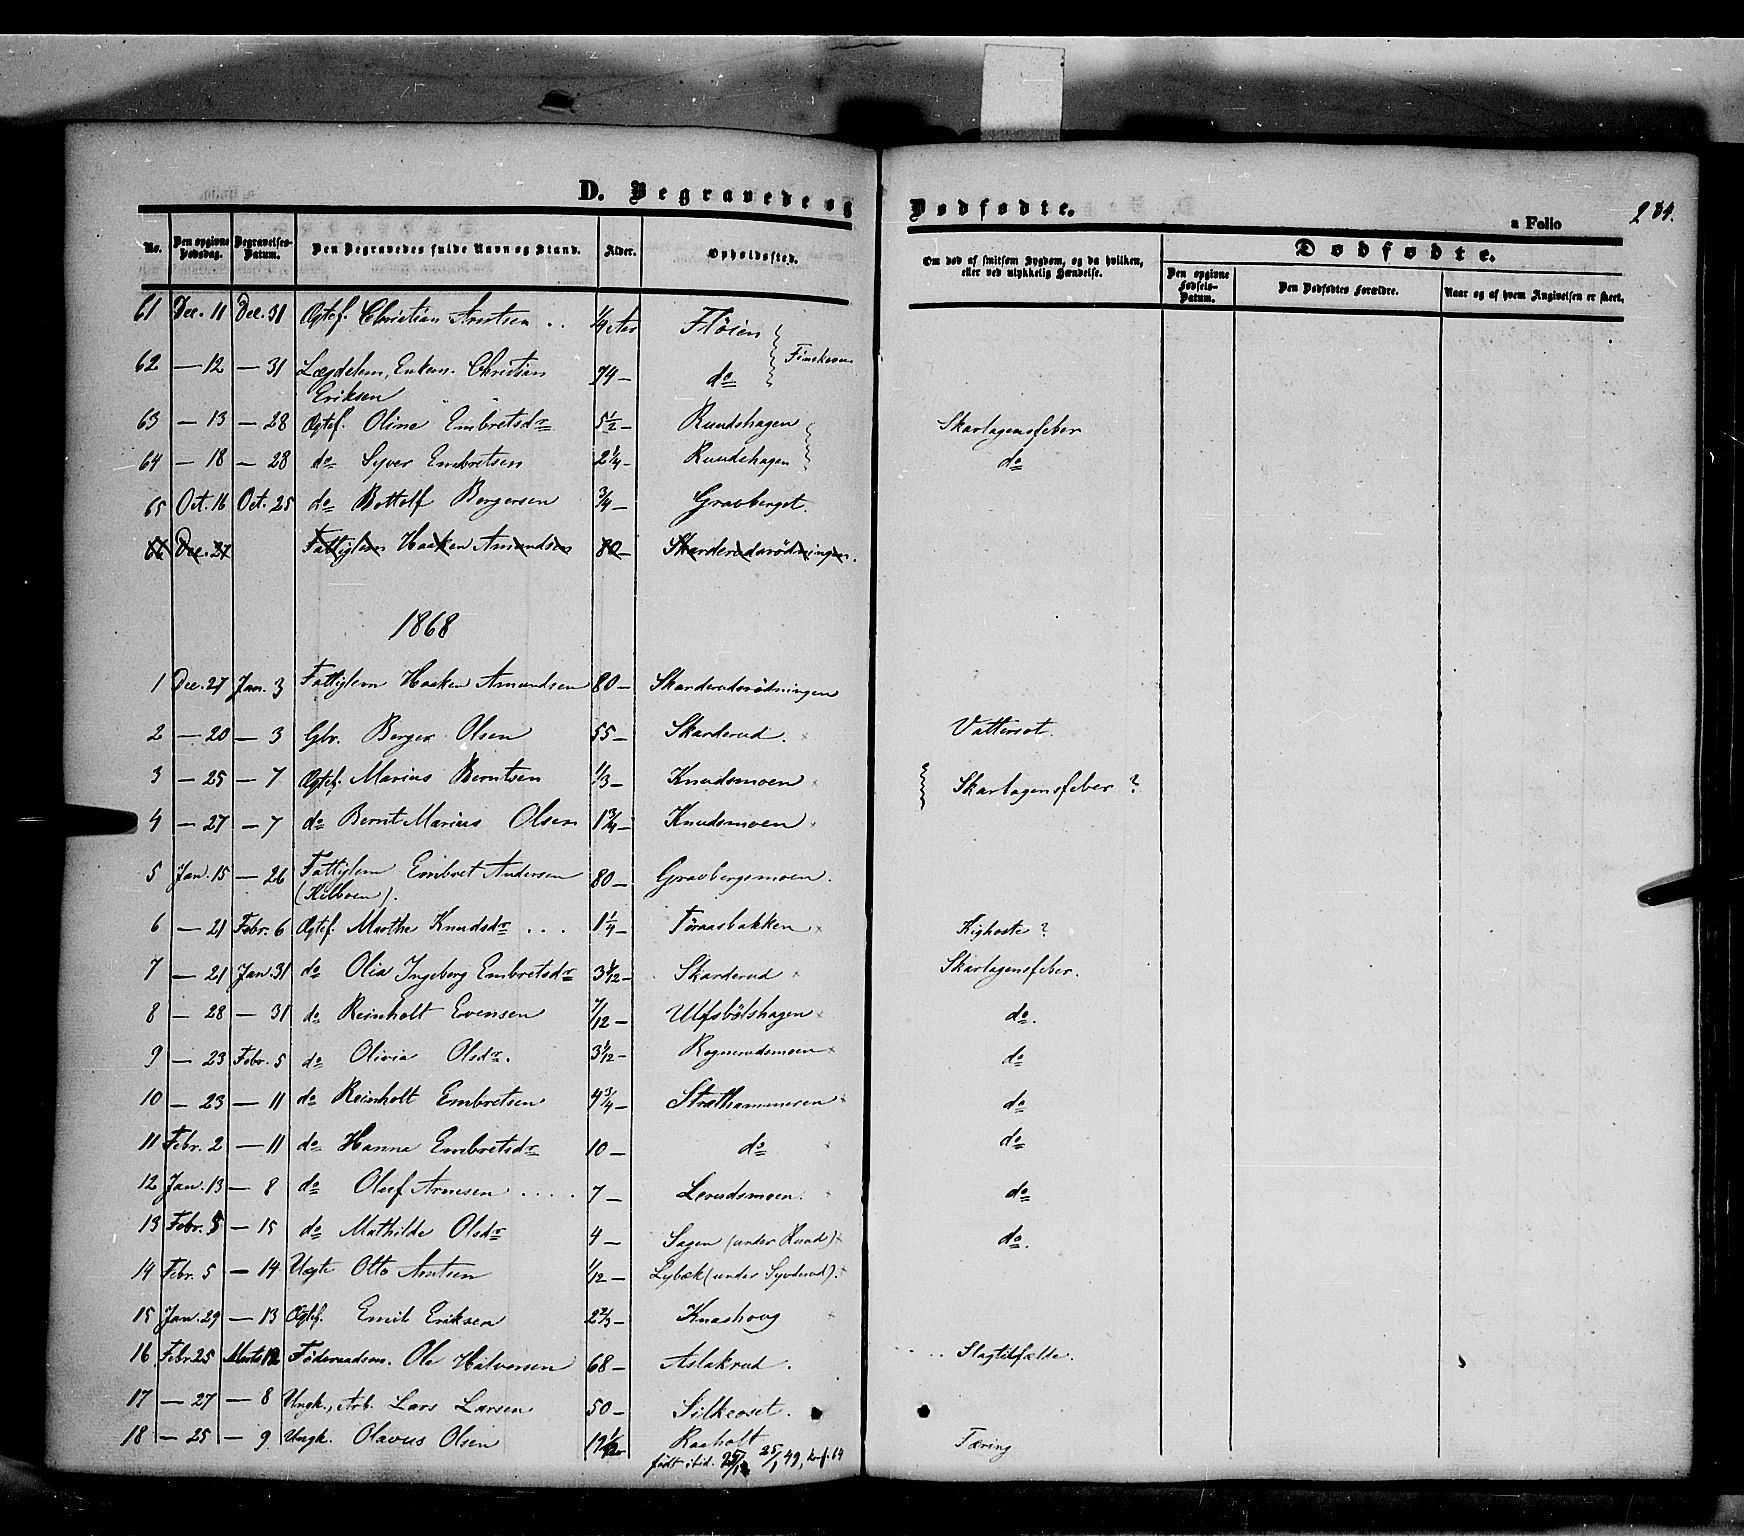 D. Begravede og Dødfødte.
a Folio 284.
No. Den opgivne Dødsdag. Begravelses-Datum. Den Begravedes fulde Navn og Stand. Alder. Opholdssted. Om død af smitsom Sygdom, og da hvilken, eller ved ulykkelig Hændelse. Dødfødte.
Den opgivne Fødsels-Datum. Den Dødfødtes Forældre. Naar og af hvem Angivelsen er skeet.
61 Dec. 11 Dec. 31 Ægtef. Christian Arntsen .. 1/4 Aar Fløien
62 — 12 — 31 Lægdslem, Enkem. Christian Eriksen 74 — do
63 — 13 — 28 Ægtef. Oline Embretsdr 5 1/2 — Ruudshagen Skarlagensfeber
64 — 18 — 28 do Syver Embretsen 2 1/4 — Ruudshagen do
65 Oct. 16 Oct. 25 do Bottolf Borgersen 3/4 — Gravberget.
66 Dec. 27 Fattiglem Haaken Amundsen 80 — Skarderudsrødningen.
1868
1 Dec. 27 Jan. 3 Fattiglem Haaken Amundsen 80 — Skarderudsrødningen
2 — 20 — 3 Gbr. Berger Olsen 55 — Skarderud. Vattersot.
3 — 25 — 7 Ægtef. Marius Berntsen 1/3 — Knudsmoen Skarlagensfeber ?
4 — 27 — 7 do Bernt Marius Olsen 1 3/4 — Knudsmoen
5 Jan. 15 — 26 Fattiglem Embret Andersen (Kilboen). 80 — Gravbergsmoen.
6 — 21 Febr. 6 Ægtef. Marthe Knudsdr ... 1 1/4 — Føraasbakken Kighoste ?
7 — 21 Jan. 31 do Olia Ingeborg Embretsdr 3 1/12 — Skarderud Skarlagensfeber.
8 — 28 — 31 do Reinholt Evensen 7/12 — Ulfsbølshagen do.
9 — 23 Febr. 5 do Olivia Olsdr. 3 1/12 — Rognerudsmoen do
10 — 23 — 11 do Reinholt Embretsen 4 3/4 — Stræthammeren do
11 Febr. 2 — 11 do Hanna Embretsdr 10 — do do
12 Jan. 13 — 8 do Oluf Arnesen ..... 7 — Lerudsmoen. do
13 Febr. 5 — 15 do Mathilde Olsdr 4 — Sagen (under Ruud) do.
14 Febr. 5 — 14 Uægte Otto Arntsen 1/12 — Lybæk (under Syverud).
15 Jan. 29 — 13 Ægtef. Emil Eriksen 2 2/3 — Knashoug
16 Febr. 25 Marts 12 Føderaadsm. Ole Halvorsen 68 — Aslakrud. .... Slagtilfælde.
17 — 27 — 8 Ungk., Arb. Lars Larsen 50 — Silkeoset.
18 — 25 — 9 Ungk. Olavus Olsen Raaholt Tæring
født ibid. 25/1 49,